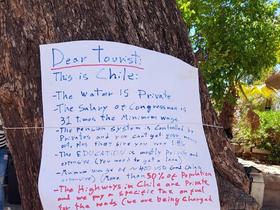 Dear Tourist:
This is Chile:
-The Water IS Private
-The Salary of Congressman is
31 times the Minimum wage
-The pension System is Controlled by
Privates and you can't get your
out, plus that give you very
-The EDUCATION is mostly Private and
expensive (you need to get a loan)
-Human wage of
(More than 50% of Population
-The Highways in Chile are Private
and we pay a specific tax on fuel
for the roads (we are being Charged